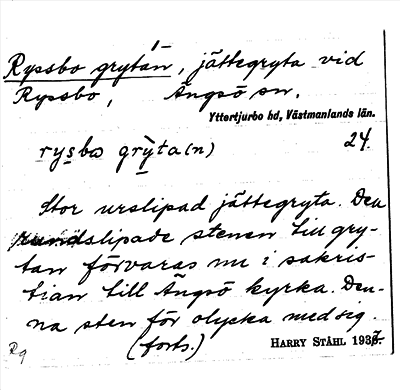 Ryssbo grytan, jättegryta vid
Ryssbo, Ängsö sn.
Yttertjurbo hd, Västmanlands län.
rysbo grỳta(n) 24.
Stor urslipad jättegryta. Den
rundslipade stenen till gry-
tan förvaras nu i sakris-
tian till Ängsö kyrka. Den-
na sten för olycka med sig.
(forts.) HARRY STÅHL 1937.
Rg